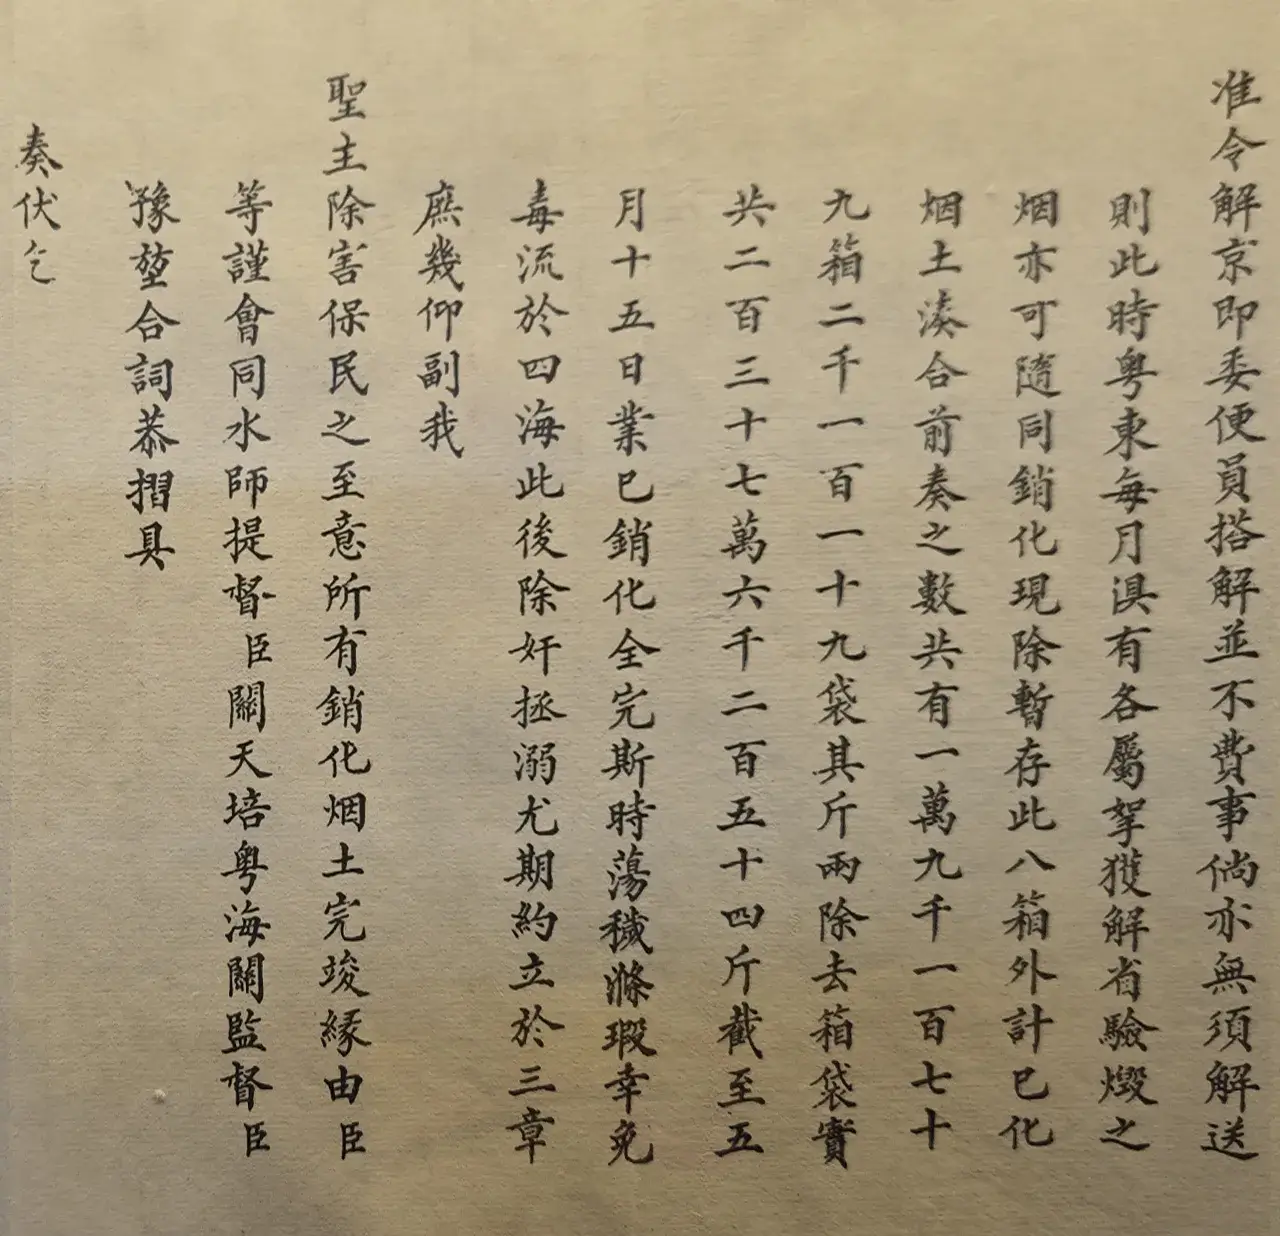 准令解京即委便員搭解並不費事倘亦無須解送
則此時粤東每月俱有各屬拏獲解省驗燬之
烟亦可隨同銷化現除暫存此八箱外計已化
烟土湊合前奏之數共有一萬九千一百七十
九箱二千一百一十九袋其斤兩除去箱袋實
共二百三十七萬六千二百五十四斤截至五
月十五日業已銷化全完斯時蕩穢滌瑕幸免
毒流於四海此後除奸拯溺尤期約立於三章
庶幾仰副我
聖主除害保民之至意所有銷化烟土完竣緣由臣
等謹會同水師提督臣關天培粤海關監督臣
豫堃合詞恭摺具
奏伏乞